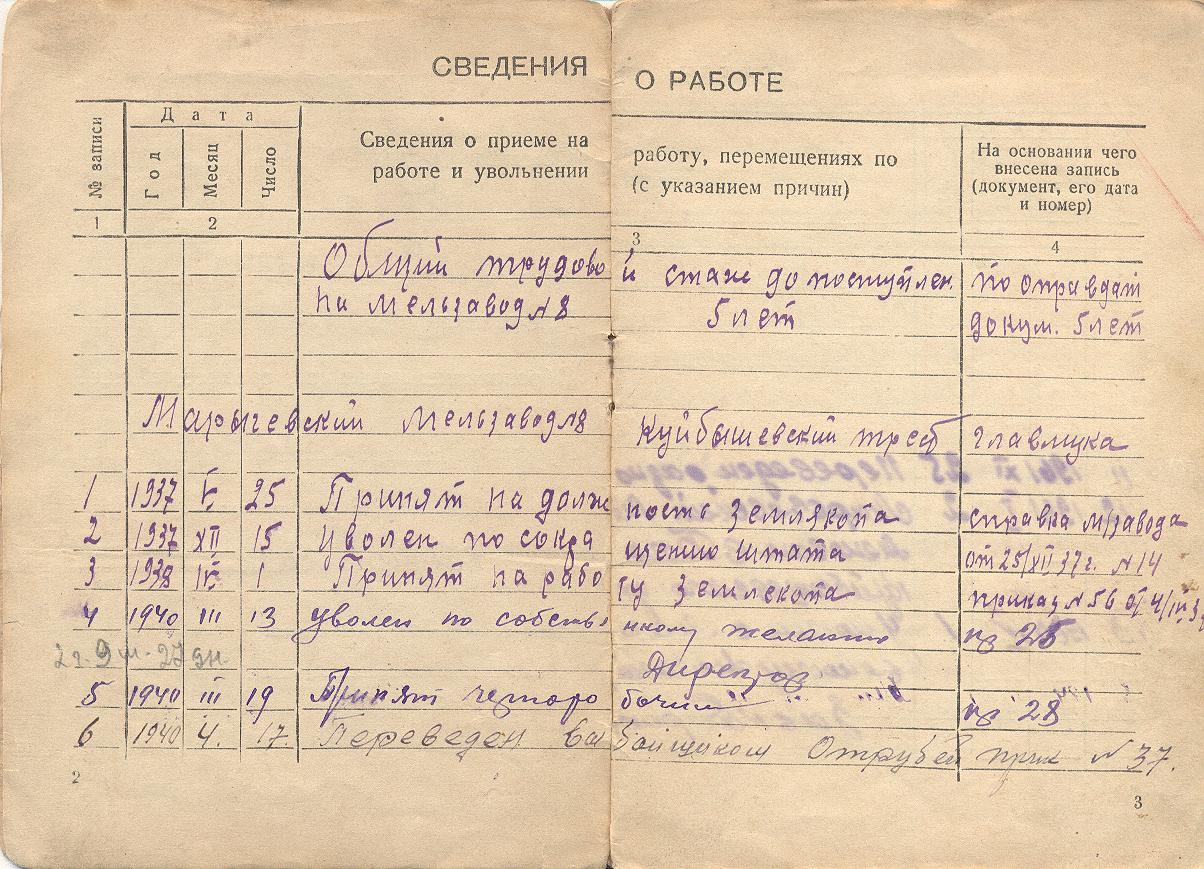 СВЕДЕНИЯ О РАБОТЕ
№ записи
Дата
Год
Месяц
Число
Сведения о приеме на работу, перемещениях по
работе и увольнении (с указанием причин)
На основании чего
внесена запись
(документ, его дата
и номер)
1 2 3 4
Общий трудовой стаж до поступлен по оправдат
на Мельзавод №8 5 лет докум. 5 лет
Марычевский Мельзавод №8 Куйбышевский трест Главмука
1 1937 V 25 Принят на должность Землякопа справка М/завода
2 1937 XII 15 Уволен по сокращению штата от 25/XII 37г. №14
3 1938 IV 1 Принят на работу Землекопа приказ №56 от 4/IV.
4 1940 III 13 уволен по собственному желанию пр 25
2 г. 9 м. 27 дн. Директор
5 1940 III 19 Принят пр 28
6 1940 4. 17. Переведен Отрубей прик №37.
2
3